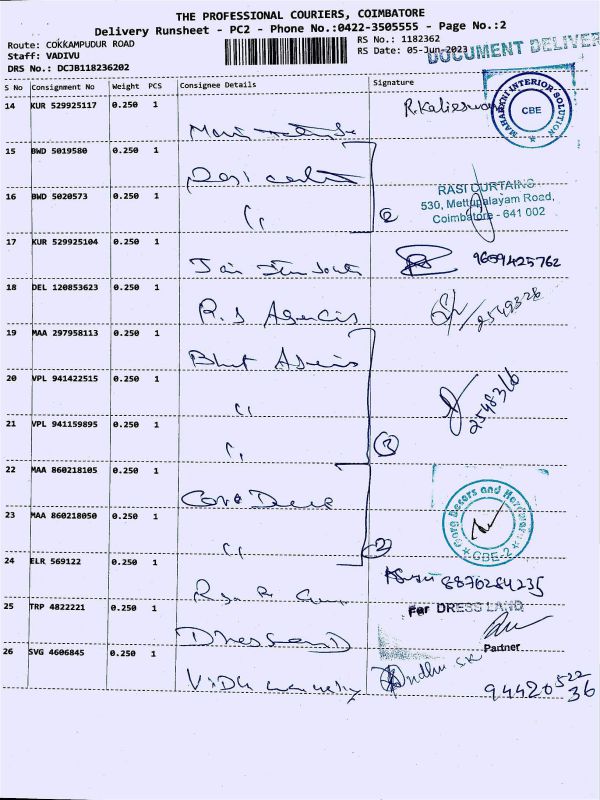 THE PROFESSIONAL COURIERS, COIMBATORE
Delivery Runsheet - PC2 - Phone No.:0422-3505555 - Page No.:2
Route: COKKAMPUDUR ROAD
RS No.: 1182362
Staff: VADIVU
RS Date: 05-Jun-2023
DRS No.: DCJB118236202
DOCUMENT DELIVER
S No Consignment No Weight PCS Consignee Details Signature
14 KUR 529925117 0.250 1
MAHARANI INTERIOR SOLUTION
CBE
15 BWD 5019580 0.250 1
16 BWD 5020573 0.250 1
〃 2
RASI CURTAINS
530, Mettupalayam Road,
Coimbatore - 641 002
17 KUR 529925104 0.250 1
9659425762
18 DEL 120853623 0.250 1
R.S Agencis
2549328
19 MAA 297958113 0.250 1
20 VPL 941422515 0.250 1
〃
2548316
21 VPL 941159895 0.250 1
〃 3
22 MAA 860218105 0.250 1
23 MAA 860218050 0.250 1
〃 2
CBE-2
24 ELR 569122 0.250 1
8870284235
25 TRP 4822221 0.250 1
For DRESS LAND
Partner
26 SVG 4606845 0.250 1
94420 522 36